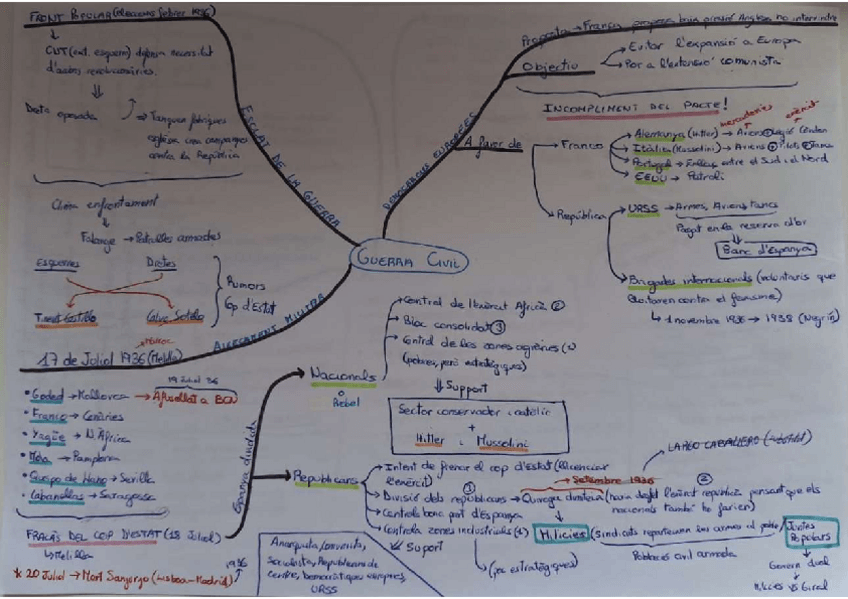 FRONT POPULAR (eleccions febrer 1936)
CUT (ext. esquerra) defensa necessitat
d'accions revolucionàries.
Dreta oposada
Tanquen fàbriques
contra la República
Clima enfrontament
Falange → Patrulles armades
Esquerres
Dretes
Rumors
Cop d'Estat
Tinent Castillo
Calvo Sotelo
ESCLAT DE LA GUERRA
ALÇAMENT MILITAR
17 de Juliol 1936 (Melilla)
19 Juliol 36
• Goded → Mallorca → Afusellat a BCN
• Franco → Canàries
• Yagüe → N. Àfrica
• Mola → Pamplona
• Queipo de Llano → Sevilla
• Cabanellas → Saragossa
FRACÀS DEL COP D'ESTAT (18 Juliol)
Melilla
* 20 Juliol → Mort Sanjurjo (Lisboa-Madrid)
1936
GUERRA CIVIL
DEMOCRÀCIES EUROPEES
Proposta → França proposa baix pressió Anglesa no intervindre
Objectiu
Evitar l'expansió a Europa
Por a l'extensió comunista
INCOMPLIMENT DEL PACTE!
A favor de
Franco
Alemanya (Hitler) → Avions + Legió Cóndor
Itàlia (Mussolini) → Avions + Pilots +
Portugal → Enllaç entre el Sud i el Nord
EEUU → Petroli
República
URSS → Armes, Avions, tancs
Pagat en la reserva d'or
Banc d'Espanya
Brigades internacionals (voluntaris que
lluitaren contra el feixisme)
1 novembre 1936 → 1938 (Negrín)
Espanya dividida
Nacionals
o
Rebel
Control de l'exèrcit Àfrica ②
Bloc consolidat ③
Control de les zones agràries (1)
(pobres, però estratègiques)
Support
Sector conservador i catòlic
+
Hitler i Mussolini
Republicans
Intent de frenar el cop d'Estat (llicenciar
l'exèrcit)
Divisió dels republicans → Quiroga dimiteix (havia desfet l'exèrcit republicà pensant que els
nacionals també ho farien)
①
②
Setembre 1936
LARGO CABALLERO
Controla bona part d'Espanya
Controla zones industrials (1)
(poc estratègiques)
Suport
Anarquista, comunista,
Socialista, Republicans de
centre, democràtiques europees,
URSS
Milícies (Sindicats reparteixen les armes al poble)
Població civil armada
Juntes
Populars
Govern dual
Milícies VS Giral